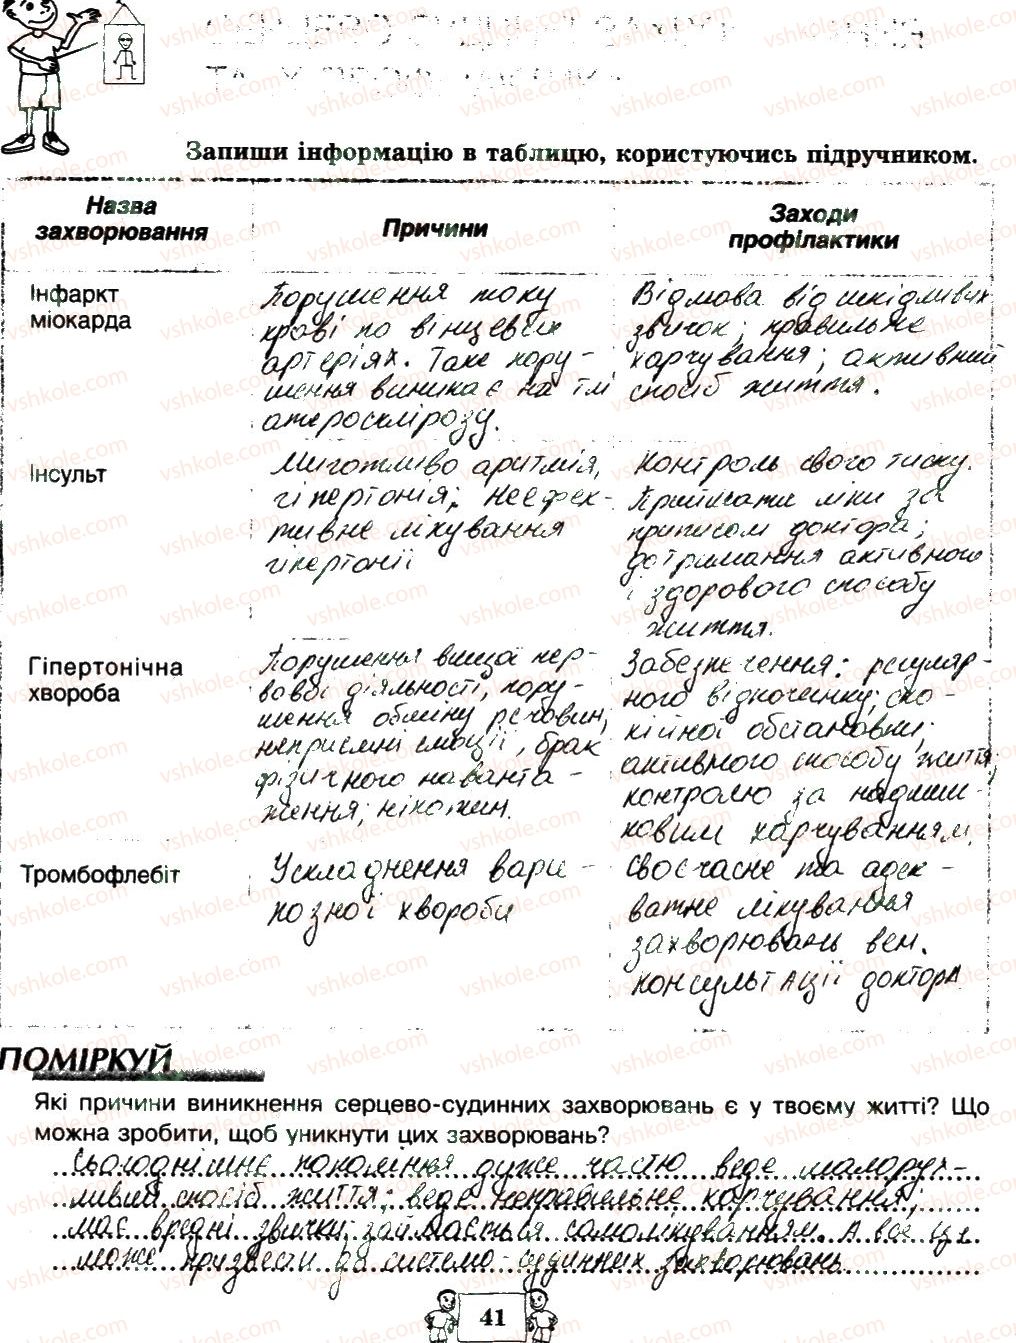 Запиши інформацію в таблицю, користуючись підручником.
Назва
захворювання
Причини
Заходи
профілактики
Інфаркт
міокарда
Порушення току
крові по вінцевих
артеріях. Таке пору-
шення виникає на тлі
атеросклірозу.
Відмова від шкідливих
звичок; правильне
харчування; активний
спосіб життя.
Інсульт
Миготливо аритмія,
гіпертонія; неефек-
тивне лікування
гіпертонії
Контроль свого тиску.
Приймати ліки за
приписом доктора;
дотримання активного
і здорового способу
життя.
Гіпертонічна
хвороба
Порушення вищої нер-
вової діяльності, пору-
шення обміну речовин,
неприємні емоції, брак
фізичного наванта-
ження; нікотин.
Забезпечення: регуляр-
ного відпочинку; спо-
кійної обстановки;
активного способу життя;
контролю за надлиш-
ковим харчуванням.
Тромбофлебіт
Ускладнення вари-
козної хвороби
Своєчасне та адек-
ватне лікування
захворювань вен.
Консультації доктора
ПОМІРКУЙ
Які причини виникнення серцево-судинних захворювань є у твоєму житті? Що
можна зробити, щоб уникнути цих захворювань?
Сьогоднішнє покоління дуже часто веде малорух-
ливий спосіб життя; веде неправильне харчування;
має вредні звички, займається самолікуванням. А все це
може призвести до системо-судинних захворювань
41
vshkole.com